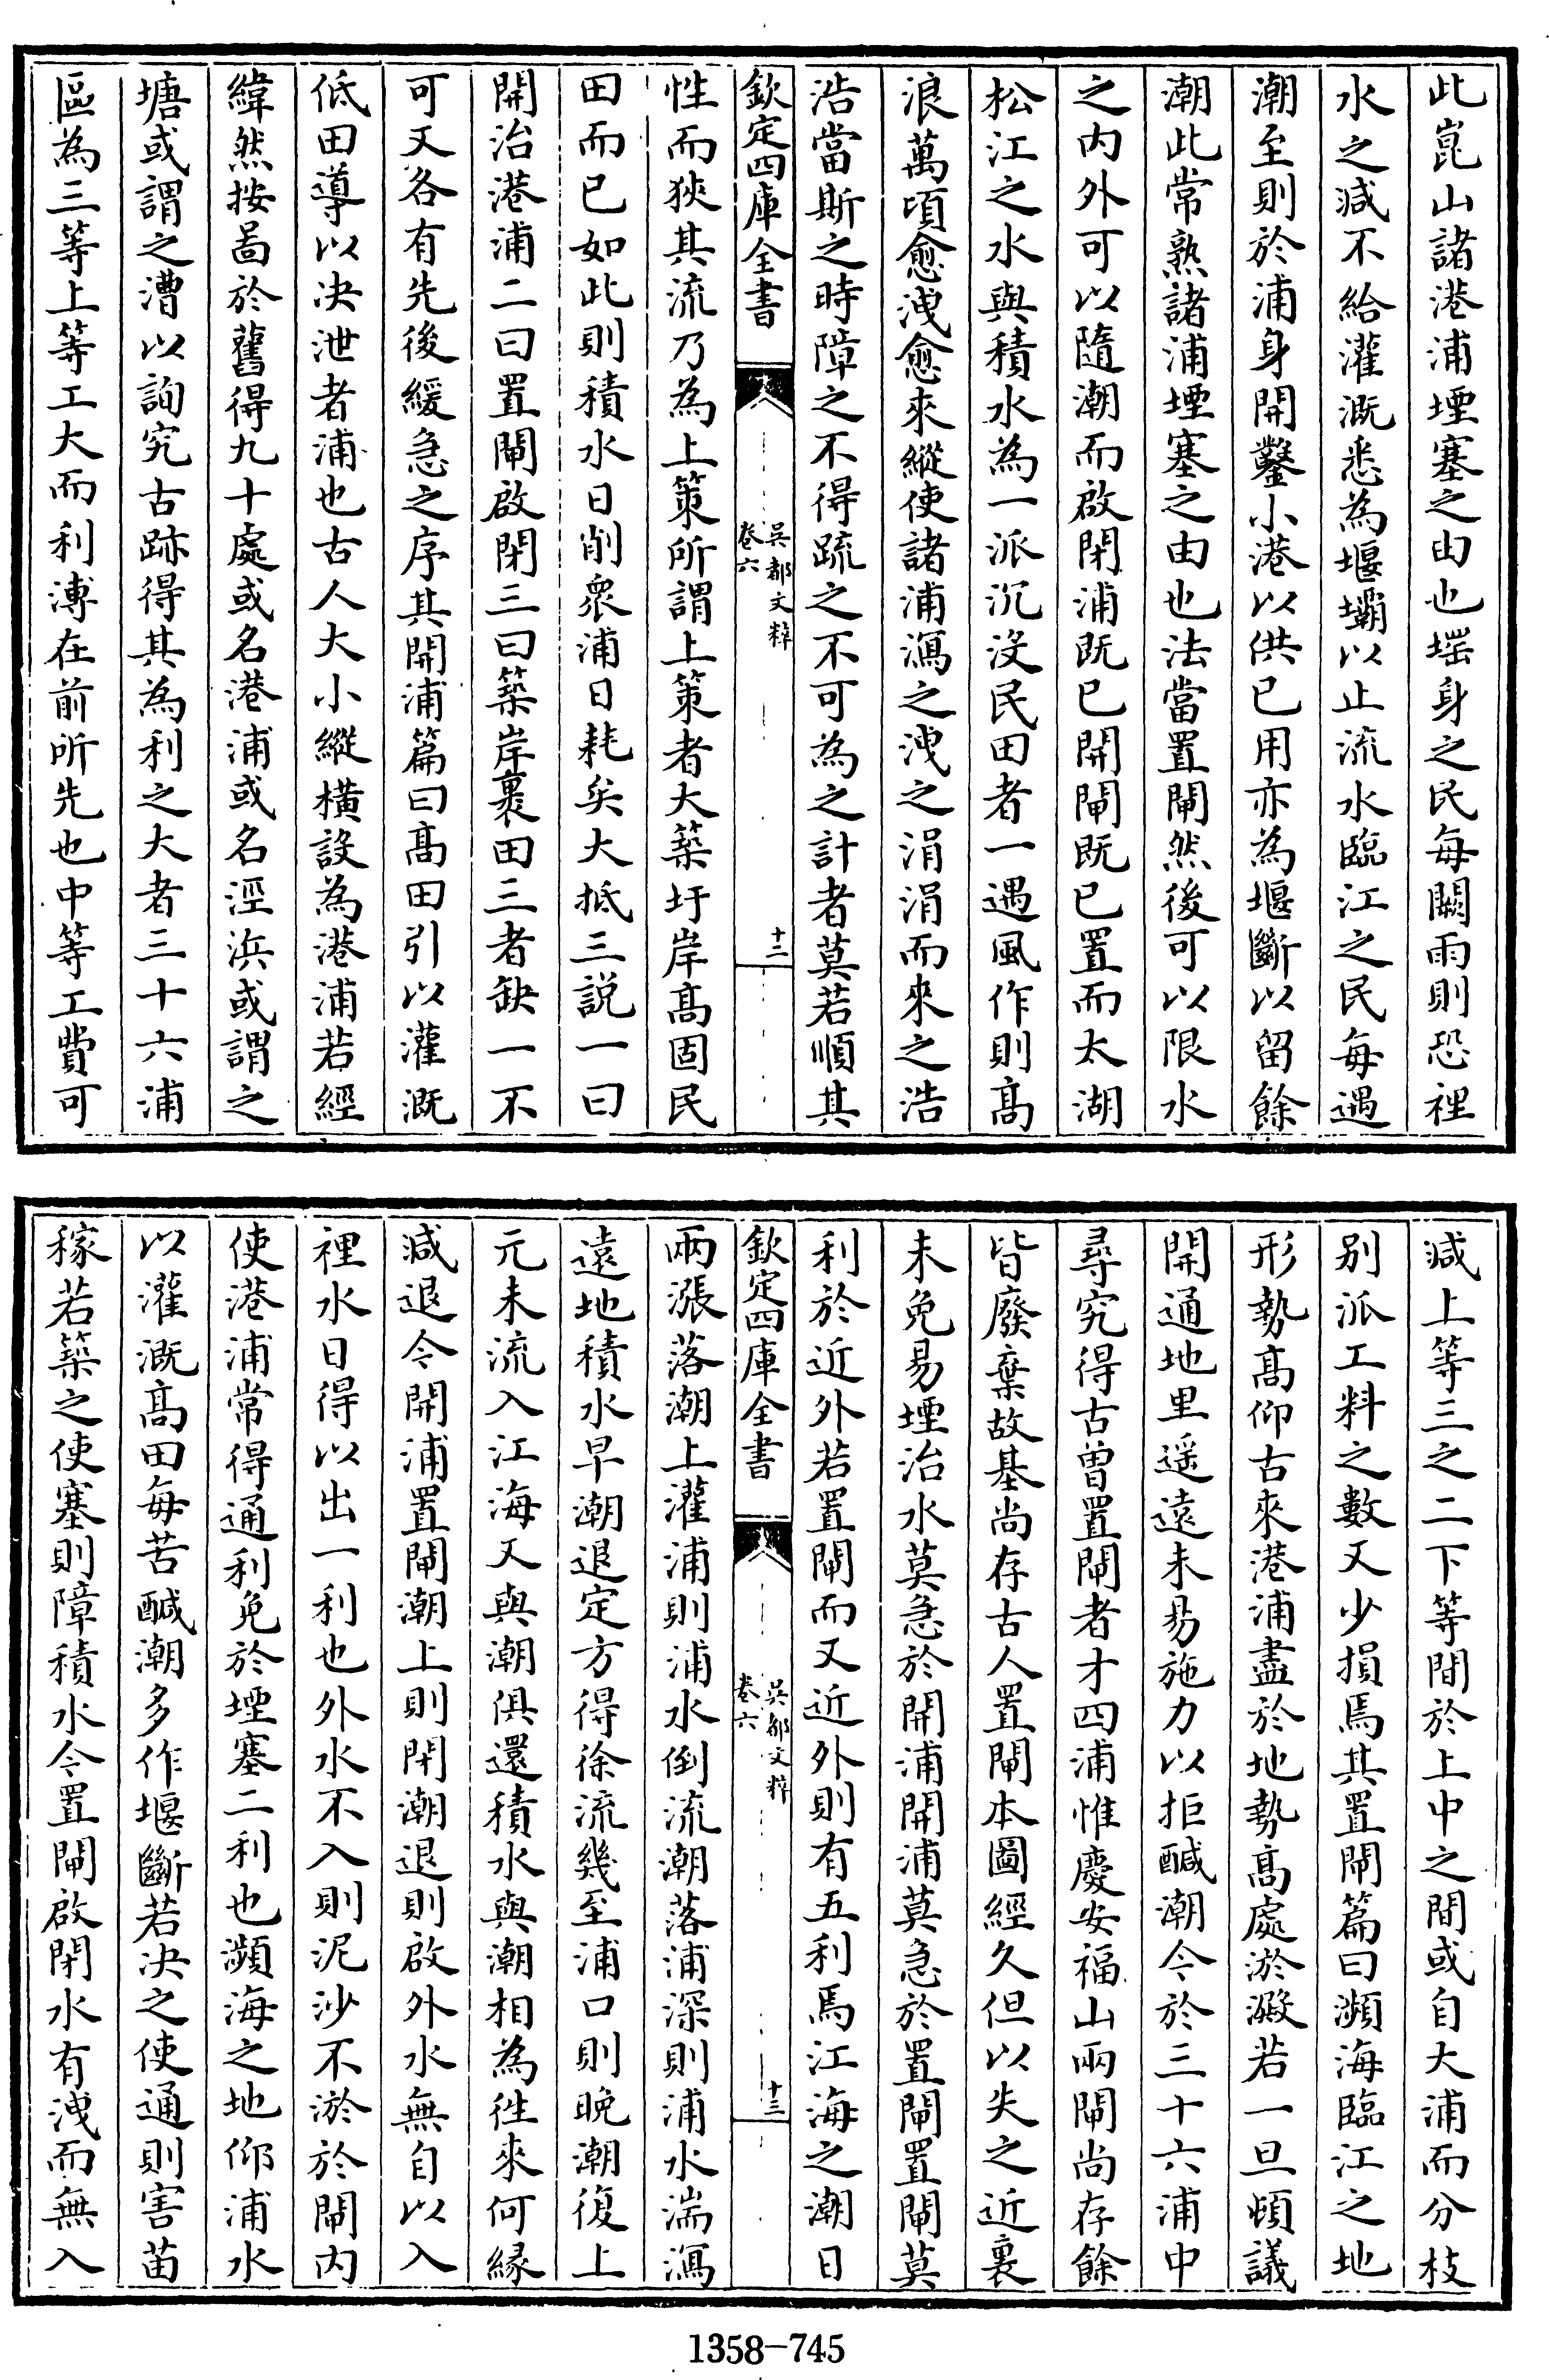 此崑山諸港浦堙塞之由也堈身之民每闕雨則恐裡
水之減不給灌溉悉為堰壩以止流水臨江之民每遇
潮至則於浦身開鑿小港以供已用亦為堰斷以留餘
潮此常熟諸浦堙塞之由也法當置閘然後可以限水
之内外可以隨潮而啟閉浦既已開閘既已置而太湖
松江之水與積水為一派沉沒民田者一遇風作則高
浪萬頃愈洩愈來縱使諸浦瀉之洩之涓涓而來之浩
浩當斯之時障之不得疏之不可為之計者莫若順其
欽定四庫全書
吳都文粹
卷六
十二
性而狹其流乃為上策所謂上策者大築圩岸高固民
田而已如此則積水日削衆浦日耗矣大抵三説一曰
開治港浦二曰置閘啟閉三曰築岸裹田三者缺一不
可又各有先後緩急之序其開浦篇曰髙田引以灌溉
低田導以决泄者浦也古人大小縱橫設為港浦若經
緯然按啚於舊得九十處或名港浦或名涇浜或謂之
塘或謂之漕以詢究古跡得其為利之大者三十六浦
區為三等上等工大而利溥在前所先也中等工費可
減上等三之二下等間於上中之間或自大浦而分枝
别派工料之數又少損焉其置閘篇曰瀕海臨江之地
形勢髙仰古來港浦盡於地勢髙處淤澱若一旦頓議
開通地里遥遠未易施力以拒醎潮今於三十六浦中
尋究得古曽置閘者才四浦惟慶安福山兩閘尚存餘
皆廢棄故基尚存古人置閘本圖經久但以失之近裏
未免易堙治水莫急於開浦開浦莫急於置閘置閘莫
利於近外若置閘而又近外則有五利焉江海之潮日
欽定四庫全書
吳都文粹
卷六
十三
兩漲落潮上灌浦則浦水倒流潮落浦深則浦水湍瀉
遠地積水早潮退定方得徐流幾至浦口則晚潮復上
元未流入江海又與潮俱還積水與潮相為徃來何緣
減退今開浦置閘潮上則閉潮退則啟外水無自以入
裡水日得以出一利也外水不入則泥沙不淤於閘内
使港浦常得通利免於堙塞二利也瀕海之地仰浦水
以灌溉髙田每苦醎潮多作堰斷若决之使通則害苗
稼若築之使塞則障積水今置閘啟閉水有洩而無入
1358-745